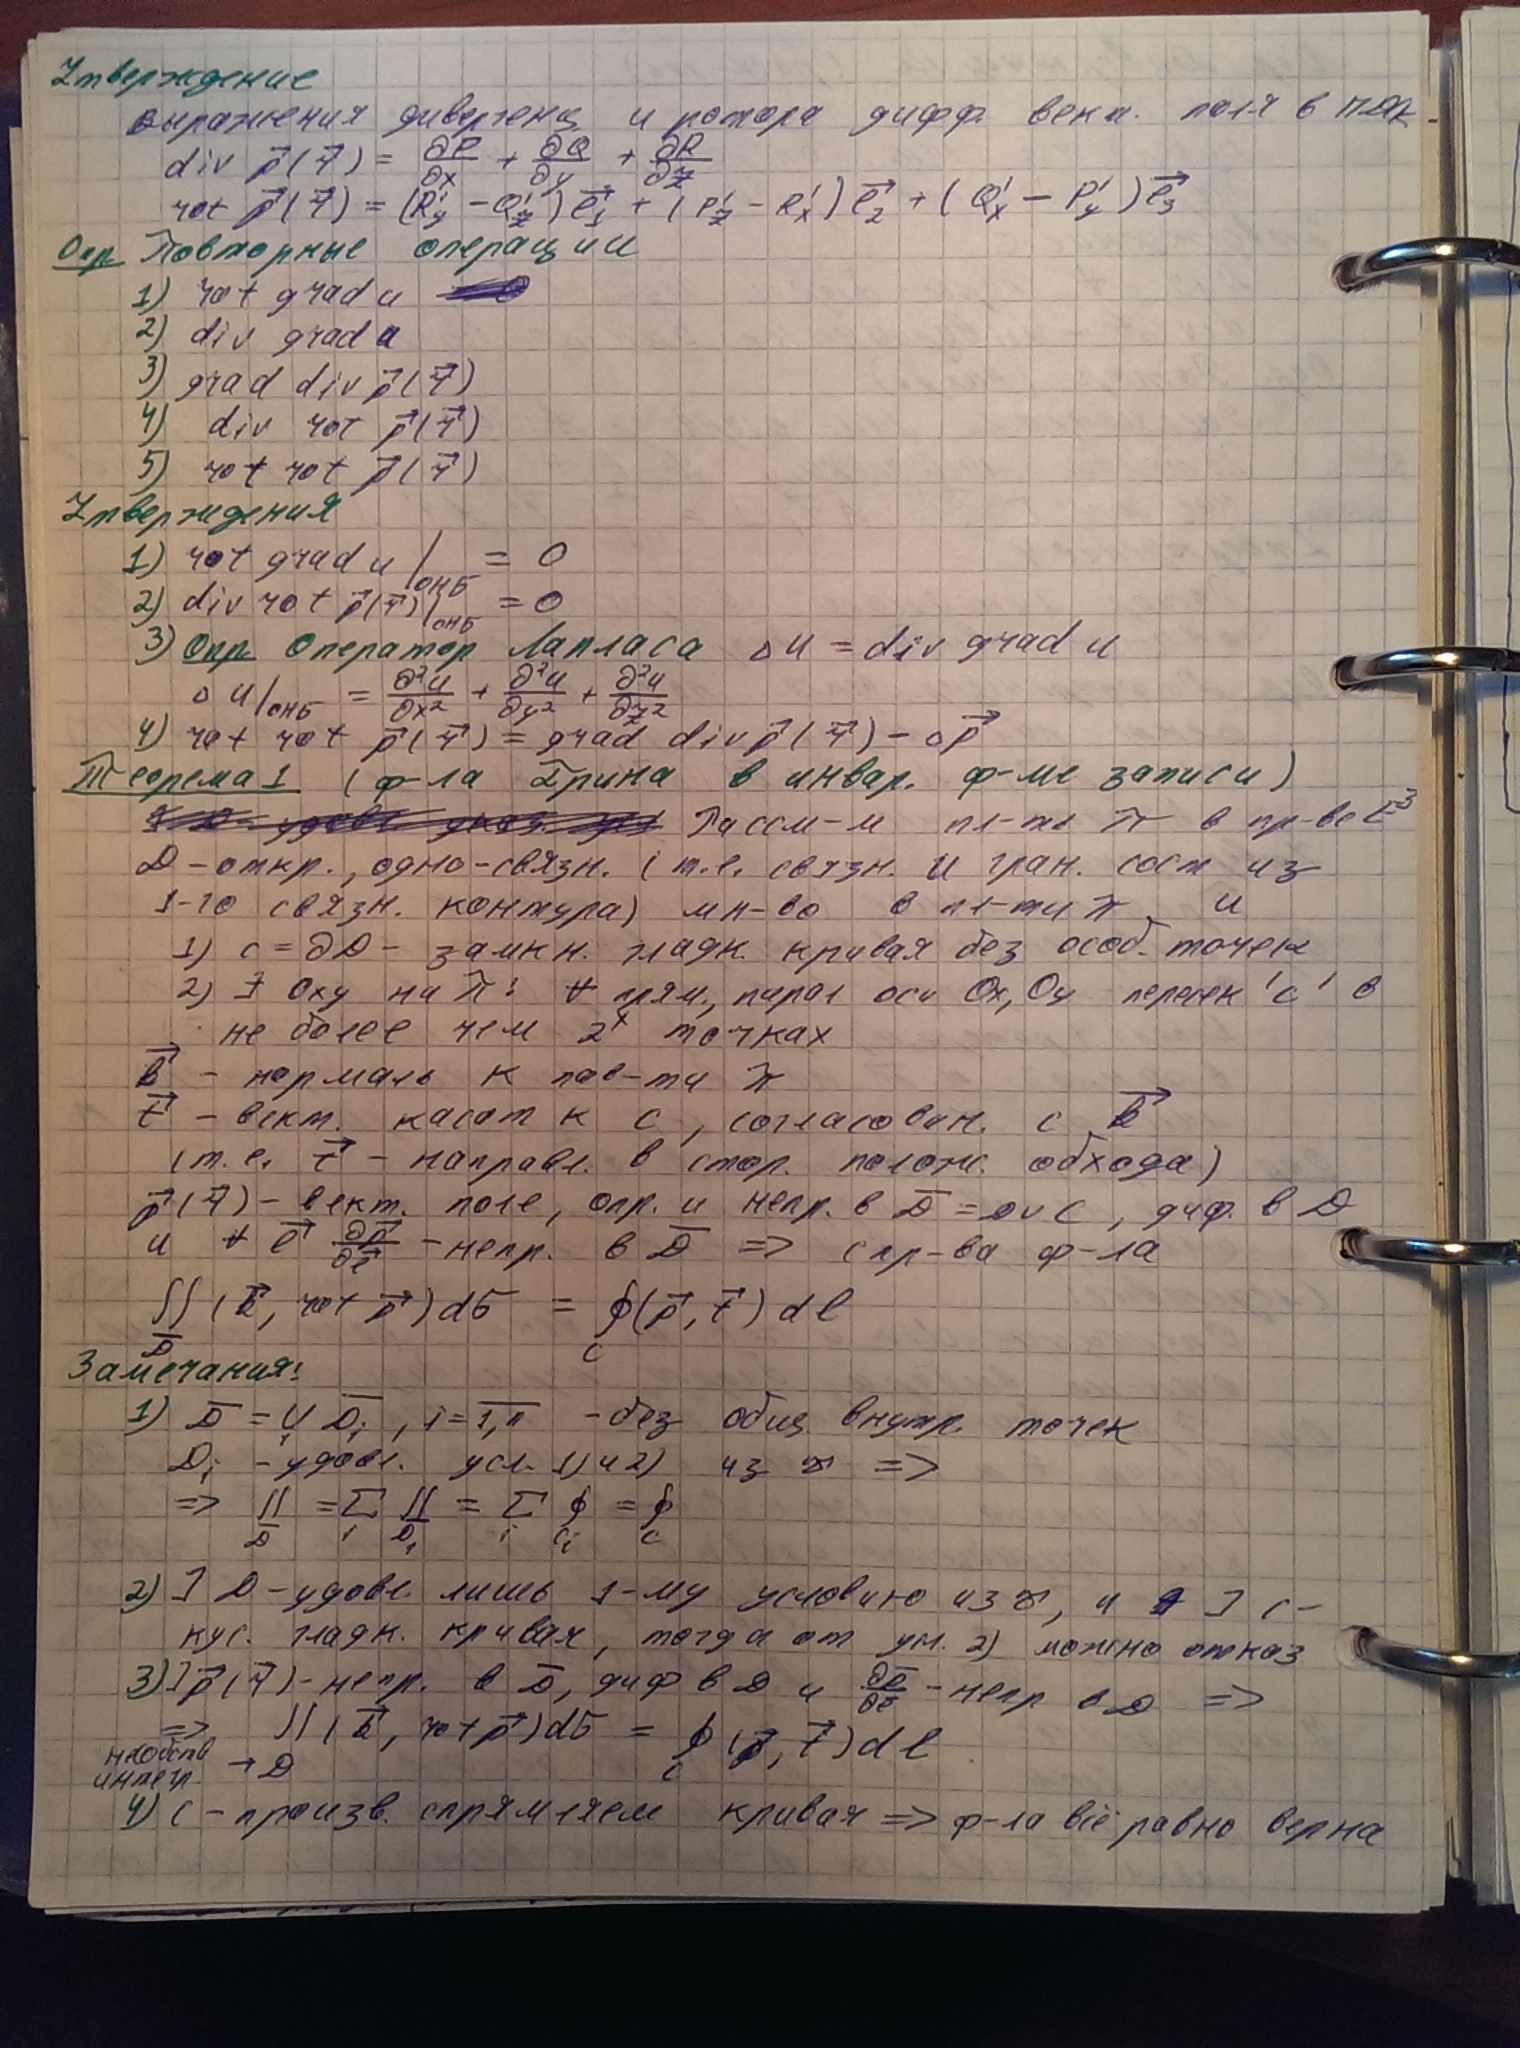 Утверждение
выражения дивергенц и ротора дифф. вект. поля в ПДСК
div p⃗(r⃗) = ∂P/∂x + ∂Q/∂y + ∂R/∂z
rot p⃗(r⃗) = (R'y − Q'z) e⃗1 + (P'z − R'x) e⃗2 + (Q'x − P'y) e⃗3
Опр Повторные операции
1) rot grad u
2) div grad u
3) grad div p⃗(r⃗)
4) div rot p⃗(r⃗)
5) rot rot p⃗(r⃗)
Утверждения
1) rot grad u |ОНБ = 0
2) div rot p⃗(r⃗)|ОНБ = 0
3) Опр Оператор Лапласа △u = div grad u
△u|ОНБ = ∂²u/∂x² + ∂²u/∂y² + ∂²u/∂z²
4) rot rot p⃗(r⃗) = grad div p⃗(r⃗) − △p⃗
Теорема 1 (ф-ла Грина в инвар. ф-ме записи)
Рассм-м пл-ть π в пр-ве E³
D – откр., одно-связн. (т.е. связн. и гран. сост из
1-го связн. контура) мн-во в пл-ти π и
1) c = ∂D – замкн. гладк. кривая без особ. точек
2) ∃ Oxy на π: ∀ прям., парал оси Ox, Oy пересек 'c' в
не более чем 2х точках
k⃗ – нормаль к пов-ти π
t⃗ – вект. касат к c, согласован. с k⃗
(т.е. t⃗ – направл. в стор. полож. обхода)
p⃗(r⃗) – вект. поле, опр. и непр. в D̄ = D∪C, диф. в D
и ∀ e⃗ ∂p⃗/∂e⃗ – непр. в D̄ => спр-ва ф-ла
∬D̄ (k⃗, rot p⃗) dσ = ∮c (p⃗, t⃗) dl
Замечания:
1) D̄ = ∪ D̄i, i = 1,n – без общ внутр. точек
Di – удовл. усл. 1) и 2) из =>
=> ∬D̄ = Σi ∬D̄i = Σi ∮ci = ∮c
2) ] D – удовл лишь 1-му условию из, и ] c –
кус. гладк. кривая, тогда от ум. 2) можно отказ
3) ] p⃗(r⃗) – непр. в D̄, диф в D и ∂p̄/∂ē – непр в D =>
=> ∬ (k⃗, rot p⃗) dσ = ∮c (p⃗, t⃗) dl
интегр. → D
4) C – произв. спрямляем кривая => ф-ла всё равно верна